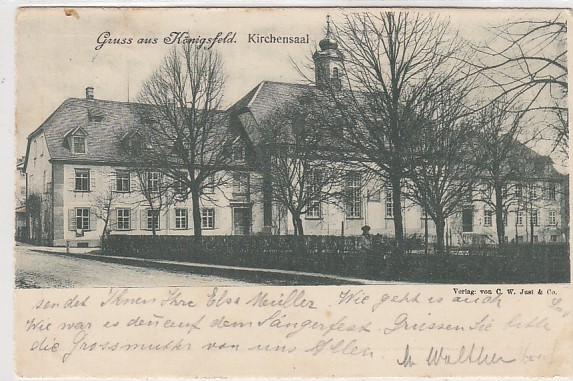 Gruss aus Königsfeld. Kirchensaal
Verlag: von C. W. Just & Co.
sendet Ihnen Ihre Else Müller Wie geht es auch
Wie war es den auf dem Sängerfest. Grüssen Sie bitte
die Grossmutter von uns Allen.
M Walther